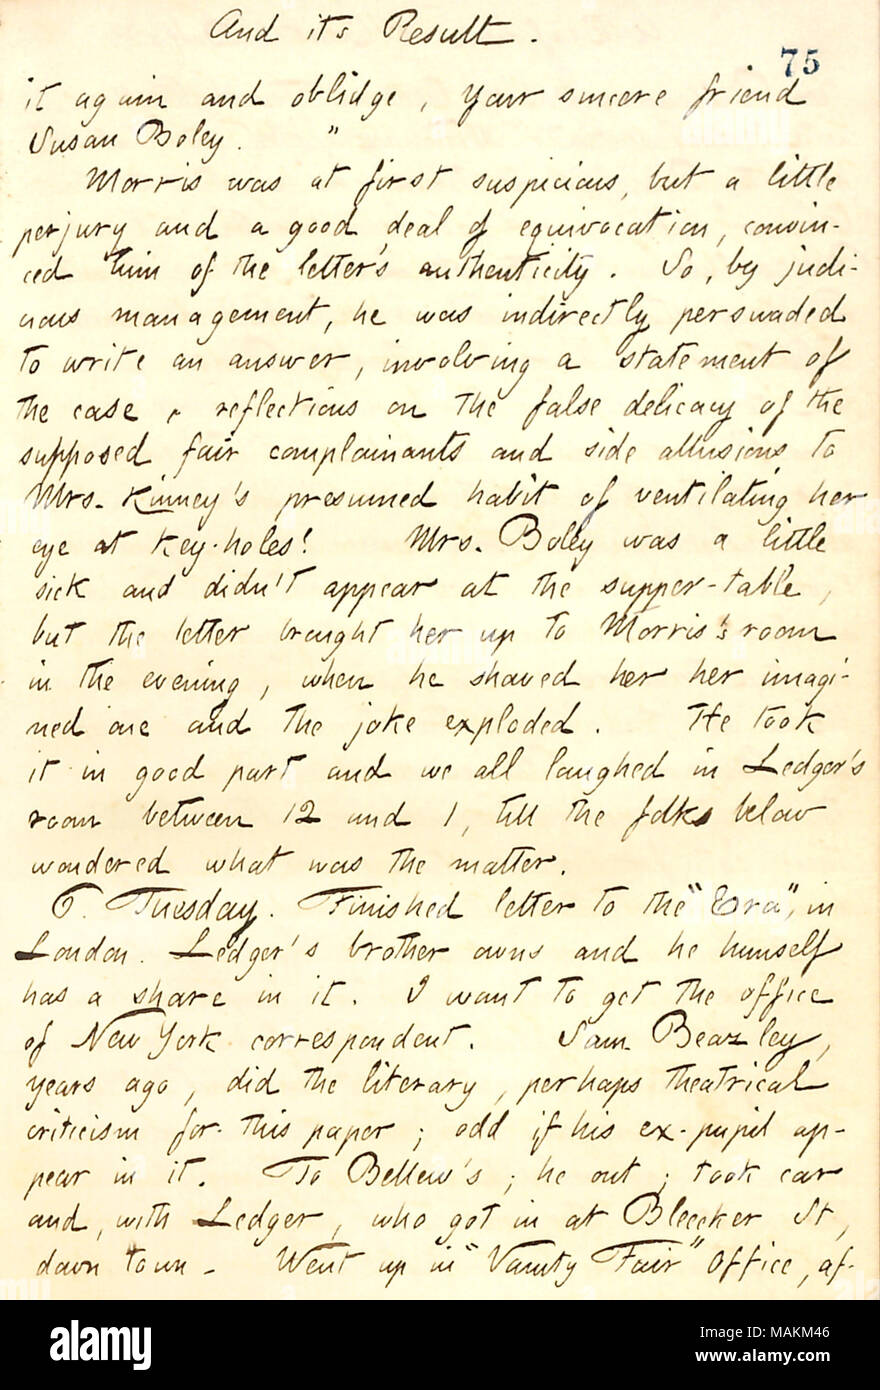 And it's Result.
75
it again and oblidge, Your sincere friend
Susan Boley. "
Morris was at first suspicious, but a little
perjury and a good deal of equivocation, convin-
ced him of the letter's authenticity. So, by judi-
cious management, he was indirectly persuaded
to write an answer, involving a statement of
the case, reflections on the false delicacy of the
supposed fair complainants and side allusions to
Mrs. Kinney's presumed habit of ventilating her
eye at key-holes! Mrs. Boley was a little
sick and didn't appear at the supper-table,
but the letter brought her up to Morris's room
in the evening, when he showed her her imagi-
ned one and the joke exploded. He took
it in good part and we all laughed in Ledger's
room between 12 and 1, till the folks below
wondered what was the matter.
6. Tuesday. Finished letter to the "Era", in
London. Ledger's brother owns and he himself
has a share in it. I want to get the office
of New York correspondent. Sam Beazley,
years ago, did the literary, perhaps theatrical
criticism for this paper; odd if his ex-pupil ap-
pear in it. To Bellew's; he out; took car
and, with Ledger, who got in at Bleecker St,
down town. Went up in "Vanity Fair" Office, af-
alamy
Image ID: MAKM46
www.alamy.com